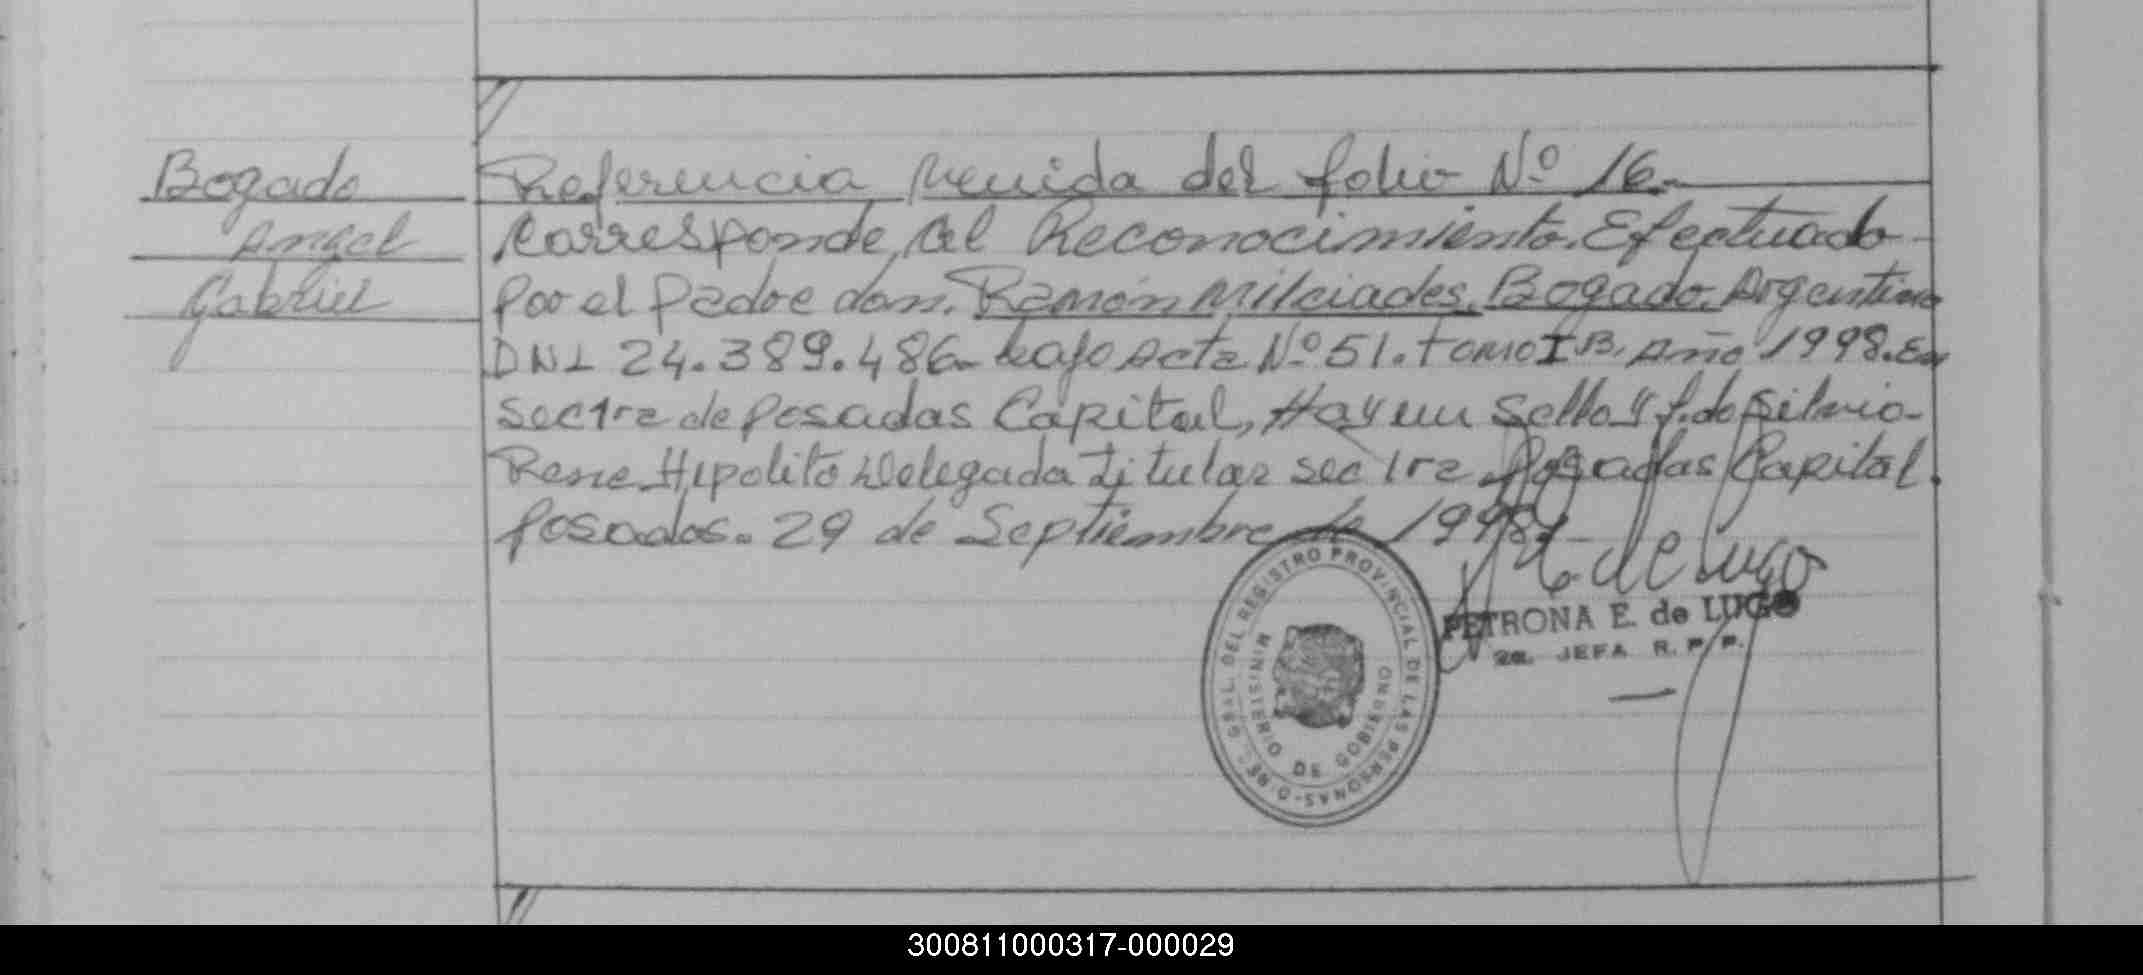 Bogado
Angel
Gabriel
Referencia venida del folio Nº 16.
Corresponde, al Reconocimiento. Efectuado
por el padre don. Ramón Milciades. Bogado. Argentino
DNI 24.389.486- bajo Acta Nº 51. tomo I B. Año 1998. En
sec 1ra de Posadas Capital, Hay un Sello y f.do Silvio-
Rene Hipolito Delegada Titular sec 1ra Posadas Capital.
Posadas. 29 de Septiembre de 1998.
de Lugo
PETRONA E. de LUGO
2a. JEFA R. P. P.
DIRE. GRAL. DEL REGISTRO PROVINCIAL DE LAS PERSONAS
MINISTERIO DE GOBIERNO
300811000317-000029